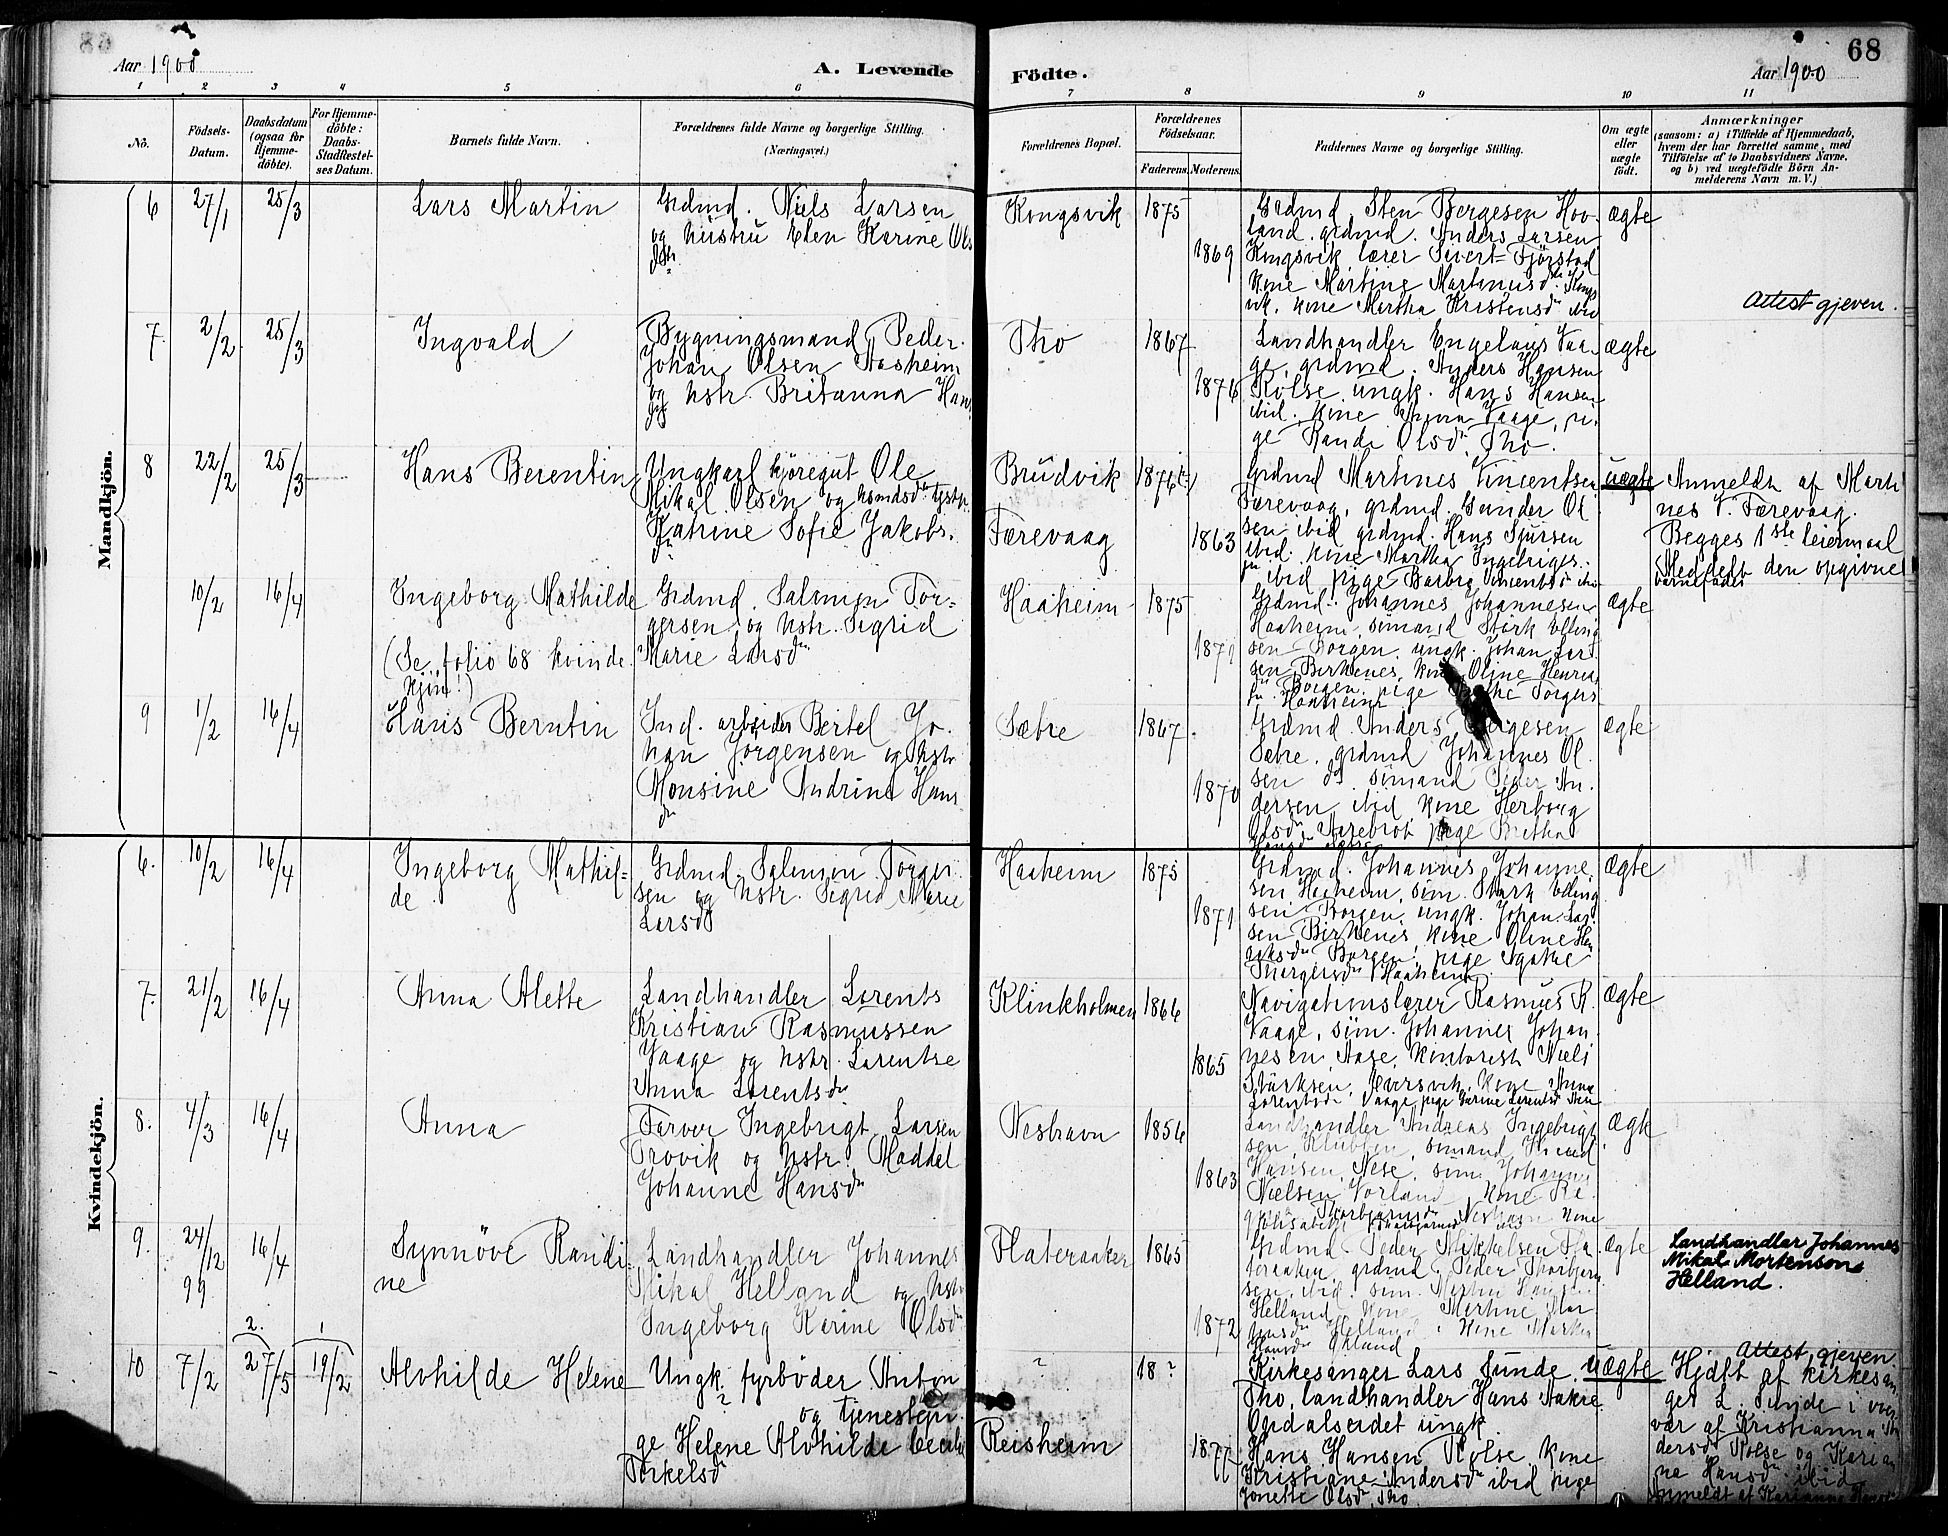 Aar 1900
A. Levende
Födte.
Aar 1900
68
1 2 3 4 5 6 7 8 9 10 11
No.
Födsels-Datum.
Daabsdatum (ogsaa for Hjemme-döbte).
For Hjemme-döbte: Daabs-Stadfestel-ses Datum.
Barnets fulde Navn.
Forældrenes fulde Navne og borgerlige Stilling.
(Næringsvei.)
Forældrenes Bopæl.
Forældrenes Födselsaar.
Faderens. Moderens.
Faddernes Navne og borgerlige Stilling.
Om ægte eller uægte födt.
Anmærkninger
(saasom: a) i Tilfælde af Hjemmedaab,
hvem der har forrettet samme, med
Tilföielse af to Daabsvidners Navne,
og b) ved uægtefödte Börn An-
melderens Navn m. V.)
Mandkjön.
6 27/1 25/3 Lars Martin
Grdmd. Niels Larsen
og hustru Elen Karine Ols
dtr
Kongsvik 1875
1869
Grdmd. Sten Børgesen Hov-
land, grdmd. Anders Larsen
Kongsvik, lærer Sivert Fjørstad
kone Martine Martinusd. Kongs
vik, kone Martha Kristensdr ibid
ægte
7. 2/2 25/3 Ingvald
Bygningsmand Peder
Johan Olsen Aasheim
og hstr. Britanna Hans
Tho 1867
1876
Landhandler Engelaus Vaa-
ge, grdmd. Anders Hansen
Rolse, ungk. Hans Hansen
ibid, kone Anna Vaage, pi-
ge Randi Olsdr, Tho.
ægte
Attest gjeven.
8 22/2 25/3 Hans Berentin
Ungkarl kjøregut Ole
Mikal Olsen og
Katrine Sofie Jakobs.
dr
Brudvik
Færevaag
1876
1863
Grdmd Martines Vincentsen
Færevaag, grdmd. Gunder Ol
sen ibid grdmd. Hans Sjursen
ibid. kone Martha Ingebrigts.
dr ibid pige Barbra Vincentsdr ibid
uægte
Anmeldt af Marti
nes V. Færevaag.
Begges 1ste leiermaal
Meddelt den opgivne
barnefader
10/2 16/4 Ingeborg Mathilde
(Se folio 68 kvinde-
kjön!)
Grdmd. Salomon Tor-
gersen og hstr. Sigrid
Marie Larsdr
Haaheim 1875
1871
Grdmd. Johannes Johannesen
Haaheim, sömand Störk Elling
sen Borgen, ungk. Johan Lar
sen Birkenes, kone Oline Henriks
dr Borgen, pige Torgers
dr Haaheim
ægte
9 1/2 16/4 Hans Berntin
Ind. arbeider Bertel Jo-
han Jörgensen og hstr
Monsine Andrine Hans
dr
Sætre 1867
1870
Grdmd. Anders
Sætre, grdmd Johannes Ol
sen do sömand Peder An-
dersen ibid, kone Herborg
Olsdr Aarebrot, pige Britha
ægte
Kvindekjön.
6. 10/2 16/4 Ingeborg Mathil-
de
Grdmd. Salemon Torger
sen og hstr. Sigrid Marie
Larsdr
Haaheim 1875
1871
Grdmd. Johannes Johanne
sen Haaheim, söm. Störk Elling
sen Borgen, ungk. Johan Lar
sen Birkenes, kone Oline Hen
riksdr Borgen, pige Agathe
Thorgersdr Haaheim
ægte
7. 21/2 16/4 Anna Alette
Landhandler Lorents
Kristian Rasmussen
Vaage og hstr. Lorentse
Anna Lorentsdr
Klinkholmen 1866
1865
Navigationslærer Rasmus K.
Vaage, söm. Johannes Johan
nesen Aase, kontorist Niels
Störksen, Iversvik, kone Anna
Lorentsdr Vaage pige Karine Lorentsdr
ægte
8. 4/3 16/4 Anna
Farver Ingebrigt Larsen
Trovik og hstr. Maddel
Johanne Hansdr
Neshavn 1856
1863
Landhandler Andreas Ingebrigt
sen, Klubben, sömand
Hansen Nese, söm. Johannes
Nielsen Vorland, kone
Neshavn kone
ægte
9. 24/12 99 16/4 Synnöve Randi-
ne
Landhandler Johannes
Mikal Helland og hstr
Ingeborg Karine Olsdr
Flateraaker 1865
1872
Grdmd. Peder Mikkelsen Fla
teraaken, grdmd. Peder Thorbjörn
sen ibid. söm. Martin Hansen
Helland, kone Martine Mar
tinsdr Helland, kone Marken
Hansdr Økland
ægte
Landhandlar Johannes
Mikal Mortenson
Helland.
Attest gjeven.
2. 1
10 7/2 27/5 19/2 Alvhilde Helene
Ungk. fyrböder Anton
? og tjenestepi-
ge Helene Alvhilde Cecilie
Torkelsdr
?
Reisheim
18?
1877
Kirkesanger Lars Sunde,
Tho, landhandler Hans Aakre
Opdalseidet ungk.
Hans Hansen Rolse, kone
Kristiane Andersdr ibid pige
Jonette Olsdr, Tho
uægte
Hjdbt af kirkesan
ger L. Sunde i over
vær af Kristianna An
dersdr Rolse og Karian
ne Hansdr ibid
Anmeldt af Karianna Hansdr